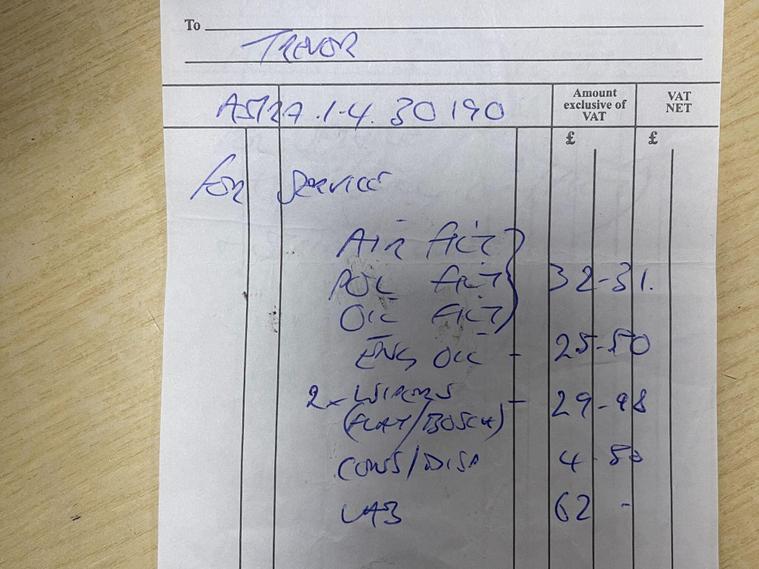 To
TREVOR
Amount exclusive of VAT
VAT NET
ASTRA 1.4. 30190
£ £
for service
AIR FILT
POL FILT 32-31.
OIL FILT
ENG OIL - 25-50
2x WIPERS - 29-98
(FLAT/BOSCH)
CONS/DISP 4-50
LAB 62 -